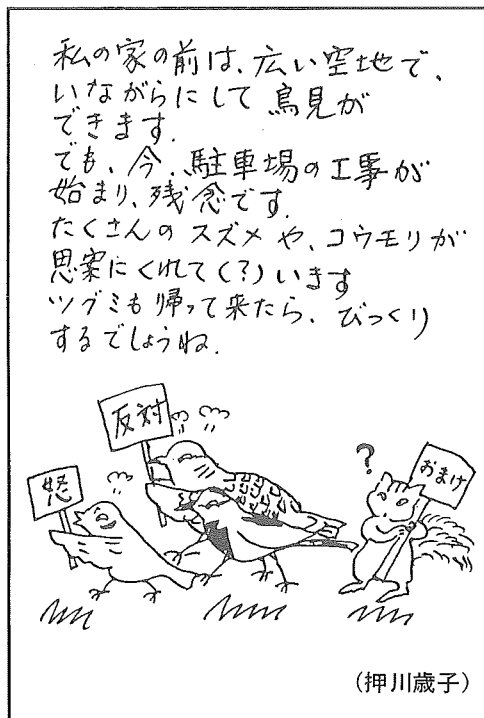 私の家の前は、広い空地で、
いながらにして鳥見が
できます.
でも、今、駐車場の工事が
始まり、残念です.
たくさんのスズメや、コウモリが
思案にくれてく(?)います
ツグミも帰って来たら、びっくり
するでしょうね.
反対
怒
?
おまけ
(押川歳子)